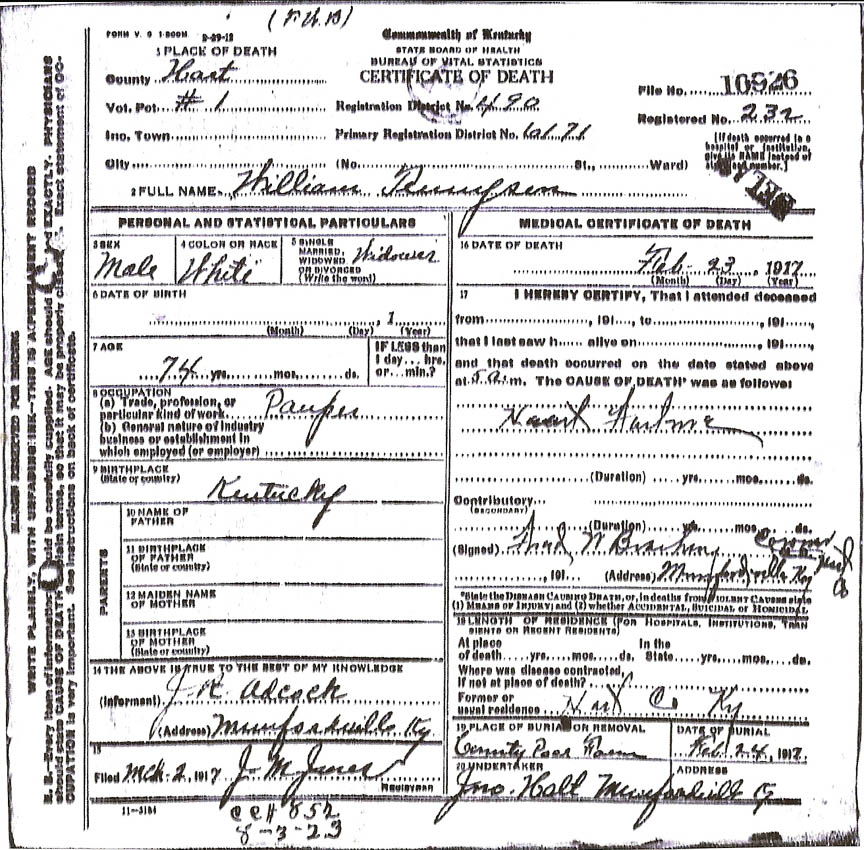 (F.U.B)
FORM V. S 1-500M 2-29-12
Commonwealth of Kentucky
STATE BOARD OF HEALTH
BUREAU OF VITAL STATISTICS
CERTIFICATE OF DEATH
1 PLACE OF DEATH
County Hart
Vot. Pct. # 1
Inc. Town
City
Registration District No. 490
Primary Registration District No. 6171
File No. 10926
Registered No. 232
(No. St., Ward)
[If death occurred in a hospital or institution, give its NAME instead of street and number.]
2 FULL NAME William
PERSONAL AND STATISTICAL PARTICULARS
3 SEX Male
4 COLOR OR RACE White
5 SINGLE MARRIED, WIDOWED OR DIVORCED (Write the word) Widower
6 DATE OF BIRTH
, 1
(Month) (Day) (Year)
7 AGE
74 yrs. mos. ds.
IF LESS than 1 day... hrs. or... min.?
8 OCCUPATION
(a) Trade, profession, or particular kind of work Pauper
(b) General nature of industry
business or establishment in
which employed (or employer)
9 BIRTHPLACE
(State or country) Kentucky
PARENTS
10 NAME OF FATHER
11 BIRTHPLACE OF FATHER (State or country)
12 MAIDEN NAME OF MOTHER
13 BIRTHPLACE OF MOTHER (State or country)
14 THE ABOVE IS TRUE TO THE BEST OF MY KNOWLEDGE
(Informant) J. R. Adcock
(Address) Munfordville Ky
15
Filed Mch 2, 1917 J. M. Jones
REGISTRAR
11-3184
CCH 852
8-3-23
MEDICAL CERTIFICATE OF DEATH
16 DATE OF DEATH
Feb 23, 1917
(Month) (Day) (Year)
17 I HEREBY CERTIFY, That I attended deceased
from , 191 , to , 191 ,
that I last saw h alive on , 191 ,
and that death occurred on the date stated above
at 5 a. m. The CAUSE OF DEATH* was as follows:
Heart Failure
(Duration) yrs. mos. ds.
Contributory
(SECONDARY)
(Duration) yrs. mos. ds.
(Signed) Coroner
, 191 (Address) Munfordville Ky
*State the DISEASE CAUSING DEATH, or, in deaths from VIOLENT CAUSES state
(1) MEANS OF INJURY; and (2) whether ACCIDENTAL, SUICIDAL or HOMICIDAL
18 LENGTH OF RESIDENCE (FOR HOSPITALS, INSTITUTIONS, TRAN
SIENTS OR RECENT RESIDENTS)
At place of death yrs. mos. ds. In the State yrs. mos. ds.
Where was disease contracted,
If not at place of death?
Former or usual residence Hart Co. Ky
19 PLACE OF BURIAL OR REMOVAL
County Poor Farm
DATE OF BURIAL
Feb 24, 1917
20 UNDERTAKER
ADDRESS
Jno. Holt Munfordville Ky
MARGIN RESERVED FOR BINDING
WRITE PLAINLY, WITH UNFADING INK—THIS IS A PERMANENT RECORD
N. B.—Every item of information should be carefully supplied. AGE should be stated EXACTLY. PHYSICIANS
should state CAUSE OF DEATH in plain terms, so that it may be properly classified. Exact statement of OC-
CUPATION is very important. See instructions on back of certificate.